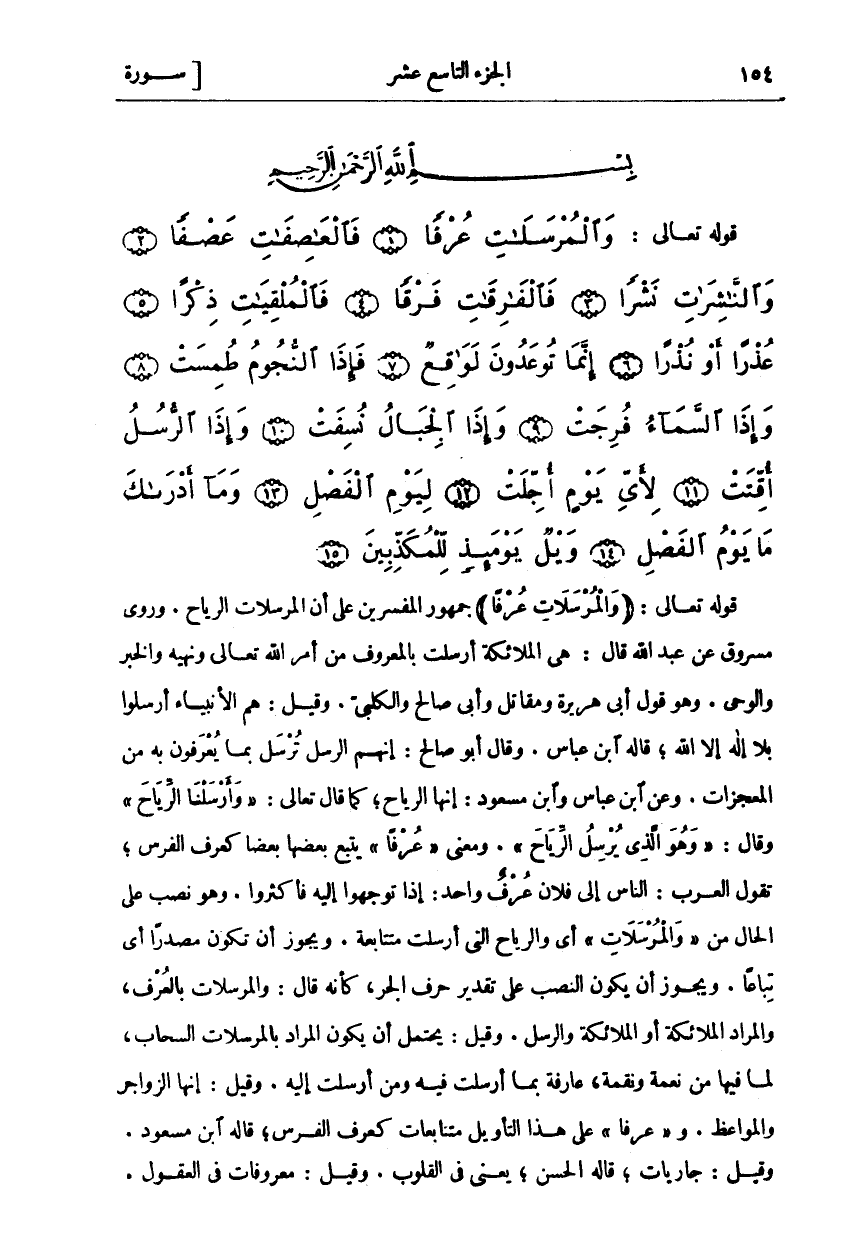 ١٥٤ الجزء التاسع عشر [ سـورة
بِسْمِ ٱللَّهِ ٱلرَّحْمَٰنِ ٱلرَّحِيمِ
قوله تعـالى : وَٱلْمُرْسَلَٰتِ عُرْفًا ﴿١﴾ فَٱلْعَٰصِفَٰتِ عَصْفًا ﴿٢﴾
وَٱلنَّٰشِرَٰتِ نَشْرًا ﴿٣﴾ فَٱلْفَٰرِقَٰتِ فَرْقًا ﴿٤﴾ فَٱلْمُلْقِيَٰتِ ذِكْرًا ﴿٥﴾
عُذْرًا أَوْ نُذْرًا ﴿٦﴾ إِنَّمَا تُوعَدُونَ لَوَٰقِعٌ ﴿٧﴾ فَإِذَا ٱلنُّجُومُ طُمِسَتْ ﴿٨﴾
وَإِذَا ٱلسَّمَآءُ فُرِجَتْ ﴿٩﴾ وَإِذَا ٱلْجِبَالُ نُسِفَتْ ﴿١٠﴾ وَإِذَا ٱلرُّسُلُ
أُقِّتَتْ ﴿١١﴾ لِأَيِّ يَوْمٍ أُجِّلَتْ ﴿١٢﴾ لِيَوْمِ ٱلْفَصْلِ ﴿١٣﴾ وَمَآ أَدْرَىٰكَ
مَا يَوْمُ ٱلْفَصْلِ ﴿١٤﴾ وَيْلٌ يَوْمَئِذٍ لِّلْمُكَذِّبِينَ ﴿١٥﴾
قوله تعـالى : ﴿وَالْمُرْسَلَاتِ عُرْفًا﴾ جمهور المفسرين على أن المرسلات الرياح . وروى
مسروق عن عبد الله قال : هى الملائكة أرسلت بالمعروف من أمر الله تعـالى ونهيه والخبر
والوحى . وهو قول أبى هريرة ومقاتل وأبى صالح والكلبىّ . وقيـل : هم الأنبيـاء أرسلوا
بلا إله إلا الله ؛ قاله ٱبن عباس . وقال أبو صالح : إنهـم الرسل تُرْسَل بمـا يُعْرَفون به من
المعجزات . وعن ٱبن عباس وٱبن مسعود : إنها الرياح؛ كما قال تعالى : « وَأَرْسَلْنَا الرِّيَاحَ »
وقال : « وَهُوَ الَّذِى يُرْسِلُ الرِّيَاحَ » . ومعنى « عُرْفًا » يتبع بعضها بعضا كعرف الفرس ؛
تقول العـرب : الناس إلى فلان عُرْفٌ واحد: إذا توجهوا إليه فأكثروا . وهو نصب على
الحال من « وَالْمُرْسَلَاتِ » أى والرياح التى أرسلت متتابعة . ويجوز أن تكون مصدرًا أى
تِباعًا . ويجـوز أن يكون النصب على تقدير حرف الجر، كأنه قال : والمرسلات بالعُرْف،
والمراد الملائكة أو الملائكة والرسل . وقيل : يحتمل أن يكون المراد بالمرسلات السحاب،
لمـا فيها من نعمة ونقمة، عارفة بمـا أرسلت فيـه ومن أرسلت إليه . وقيل : إنها الزواجر
والمواعظ . و « عرفا » على هـذا التأويل متتابعات كعرف الفـرس؛ قاله ٱبن مسعود .
وقيـل : جاريات ؛ قاله الحسن ؛ يعـنى فى القلوب . وقيـل : معروفات فى العقـول .